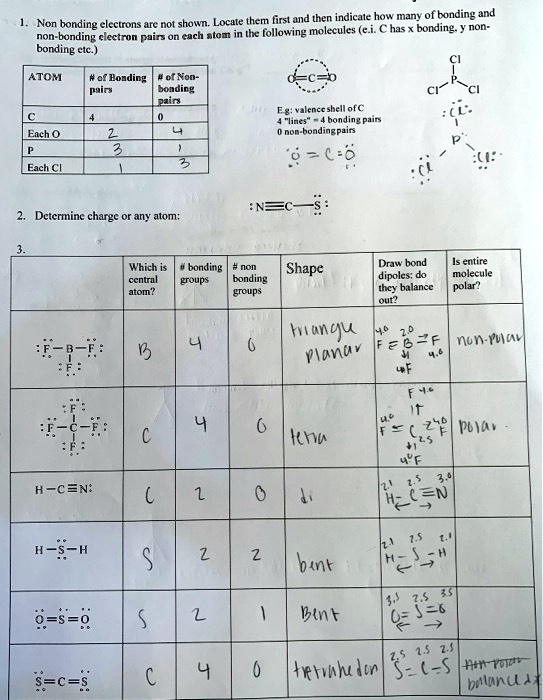 1. Non bonding electrons are not shown. Locate them first and then indicate how many of bonding and
non-bonding electron pairs on each atom in the following molecules (e.i. C has x bonding, y non-
bonding etc.)
ATOM # of Bonding pairs # of Non-bonding pairs
C 4 0
Each O 2 4
P 3 1
Each Cl 1 3
O=C=O
E.g: valence shell of C
4 "lines" = 4 bonding pairs
0 non-bonding pairs
O = C = O
Cl
P
Cl Cl
:Cl:
P
:Cl :Cl:
2. Determine charge or any atom:
:N≡C—S:
3.
Which is central atom? # bonding groups # non bonding groups Shape Draw bond dipoles: do they balance out? Is entire molecule polar?
:F—B—F:
:F:
B 4 0 triangle planar
4.0 2.0
F B F
4.0
4.0F
non-polar
:F:
:F—C—F:
:F:
C 4 0 tetra
F 4.0
4.0
F C F
2.5
4.0F
polar.
H—C≡N: C 2 0 di
2.1 2.5 3.0
H-C≡N
H—S—H S 2 2 bent
2.1 2.5 2.1
H-S-H
O=S=O S 2 1 Bent
3.5 2.5 3.5
O=S=O
S=C=S C 4 0 tetrahedon
2.5 2.5 2.5
S=C-S